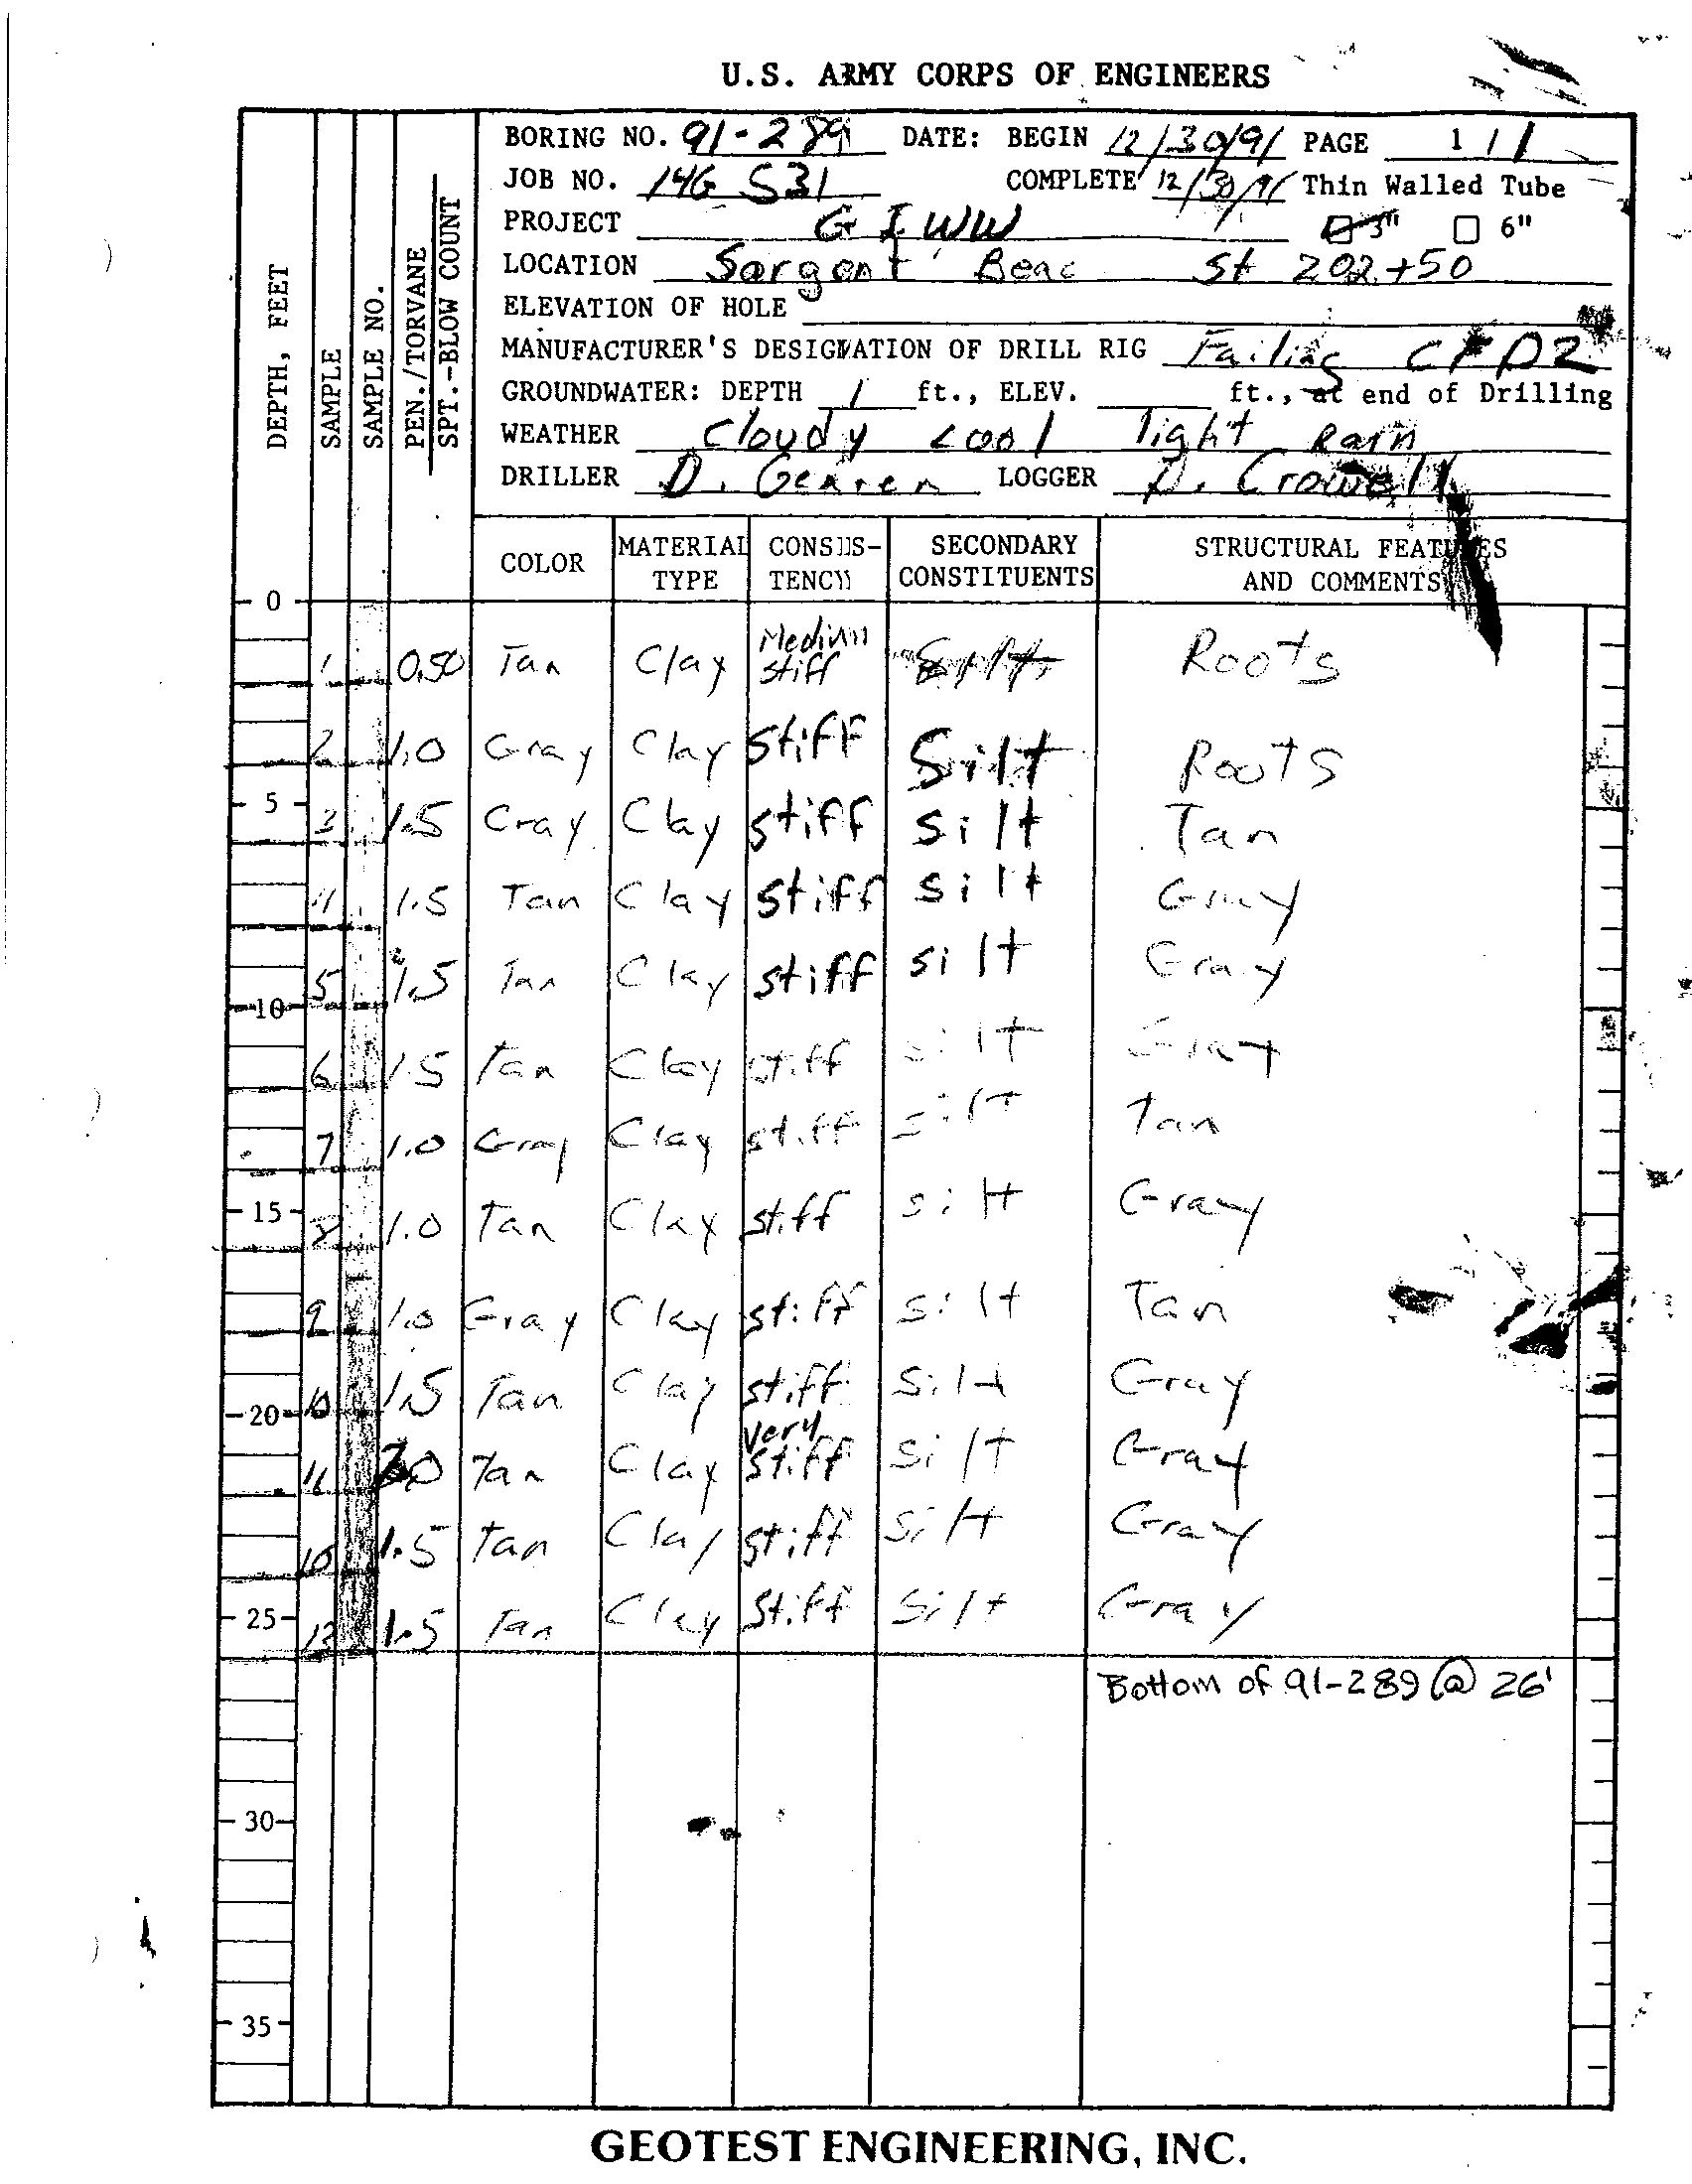 U.S. ARMY CORPS OF ENGINEERS
BORING NO. 91-289 DATE: BEGIN 12/30/91 PAGE 1 / 1
JOB NO. 14G S31 COMPLETE 12/30/91 Thin Walled Tube
PROJECT GIWW 3" 6"
LOCATION Sargent Beac St 202+50
ELEVATION OF HOLE
MANUFACTURER'S DESIGNATION OF DRILL RIG Failing
GROUNDWATER: DEPTH 1 ft., ELEV. ft., at end of Drilling
WEATHER Cloudy cool light Rain
DRILLER D. LOGGER D. Crowell
DEPTH, FEET
SAMPLE
SAMPLE NO.
PEN./TORVANE
SPT.-BLOW COUNT
COLOR MATERIAL TYPE CONSISTENCY SECONDARY CONSTITUENTS STRUCTURAL FEATURES AND COMMENTS
0
1 0.50 Tan Clay Medium stiff Silt Roots
2 1.0 Gray Clay Stiff Silt Roots
5
3 1.5 Gray Clay stiff silt Tan
4 1.5 Tan Clay stiff silt Gray
5 1.5 Tan Clay stiff silt Gray
10
6 1.5 Tan Clay stiff silt Gray
7 1.0 Gray Clay stiff silt Tan
15
8 1.0 Tan Clay stiff silt Gray
9 1.0 Gray Clay stiff silt Tan
10 1.5 Tan Clay stiff Silt Gray
20
11 2.0 Tan Clay very stiff Silt Gray
1.5 Tan Clay stiff Silt Gray
25
13 1.5 Tan Clay Stiff Silt Gray
Bottom of 91-289 @ 26'
30
35
GEOTEST ENGINEERING, INC.